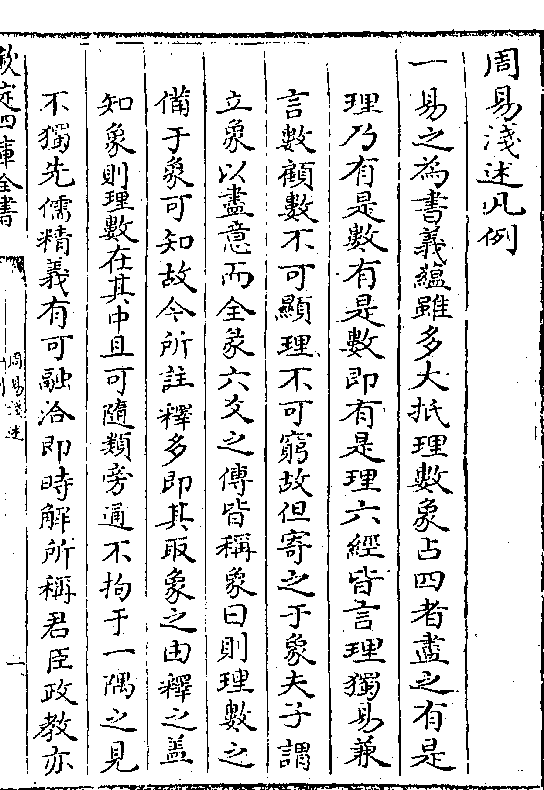 周易淺述凡例
一易之為書義蘊雖多大抵理數象占四者盡之有是
理乃有是數有是數即有是理六經皆言理獨易兼
言數顧數不可顯理不可窮故但寄之于象夫子謂
立象以盡意而全彖六爻之傳皆稱象曰則理數之
備于象可知故今所註釋多即其取象之由釋之蓋
知象則理數在其中且可隨類旁通不拘于一隅之見
不獨先儒精義有可融洽即時解所稱君臣政教亦
欽定四庫全書
周易淺述
一